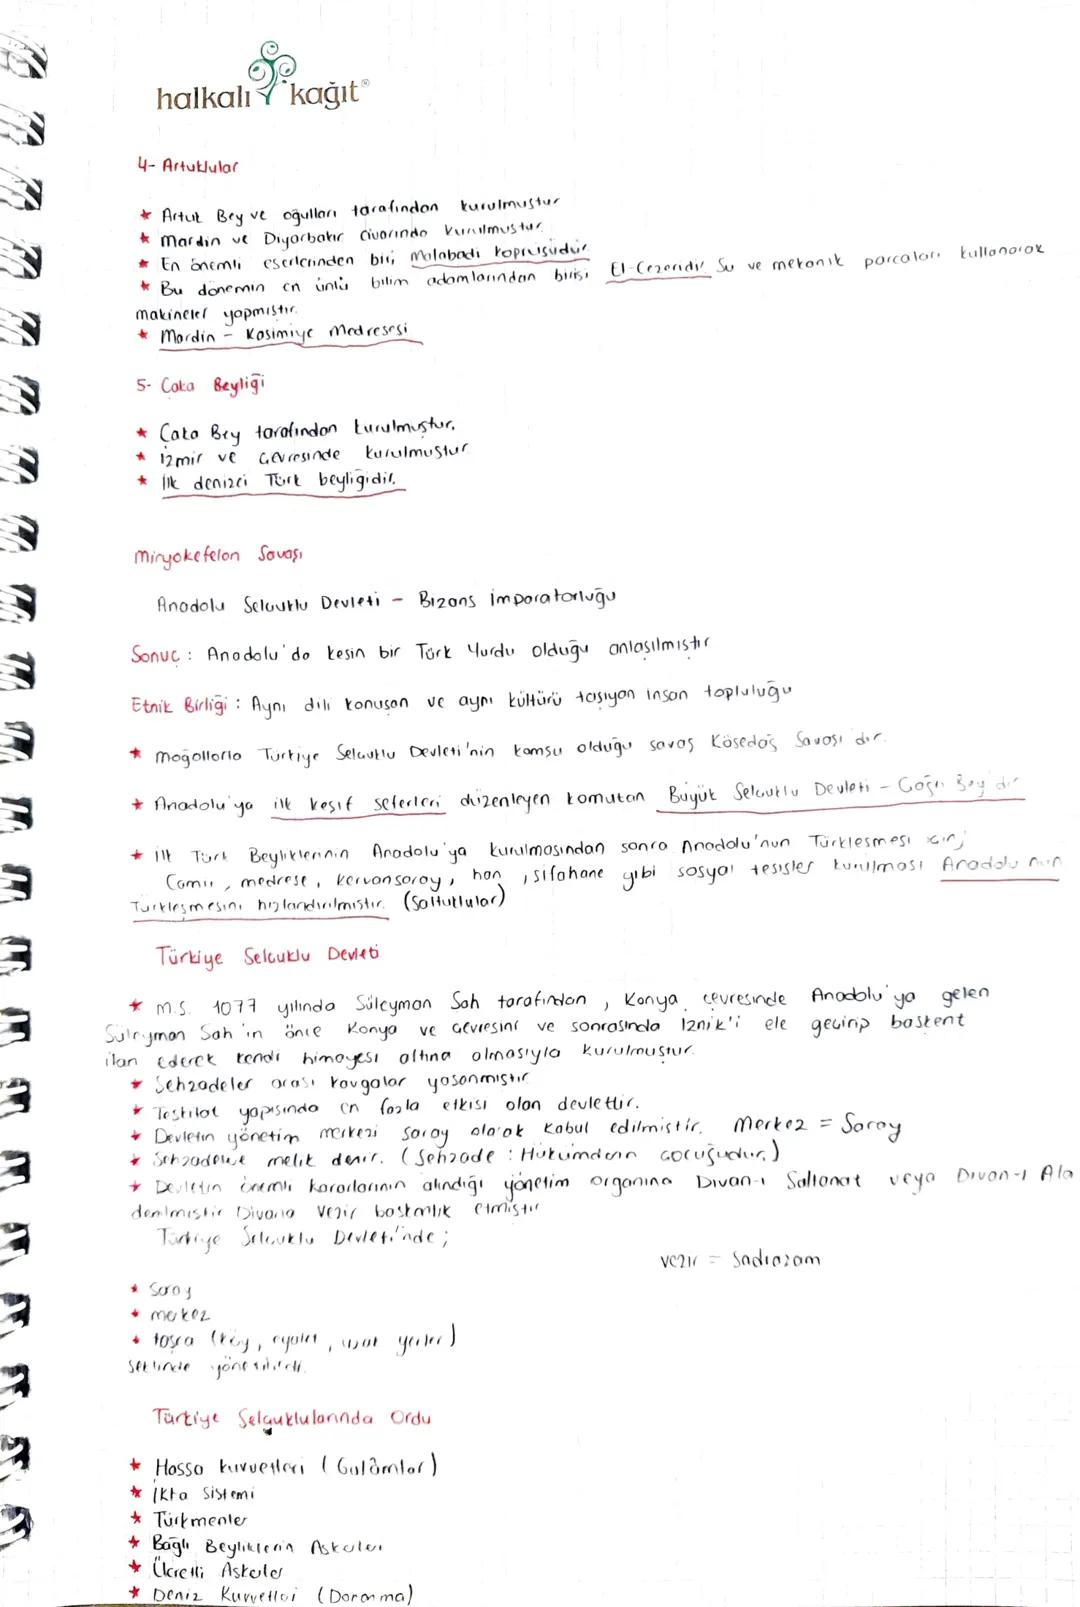 halkalı kağıt®
4- Artuklular
★ Artuk Bey ve oğulları tarafından kurulmuştur
★ Mardin ve Diyarbakır civarında kurulmuştur.
★ En önemli eserlerinden biri Malabadi köprüsüdür
★ Bu dönemin en ünlü bilim adamlarından birisi El-Cezeridir Su ve mekanik parçaları kullanarak
makineler yapmıştır.
★ Mardin - Kasimiye Medresesi
5- Çaka Beyliği
★ Çaka Bey tarafından kurulmuştur.
★ İzmir ve Çevresinde kurulmuştur
★ İlk denizci Türk beyliğidir.
Miryokefelon Savaşı
Anadolu Selçuklu Devleti - Bizans İmparatorluğu
Sonuç : Anadolu'da kesin bir Türk Yurdu olduğu anlaşılmıştır
Etnik Birliği : Aynı dili konuşan ve aynı kültürü taşıyan insan topluluğu
★ Moğollarla Türkiye Selçuklu Devleti'nin komşu olduğu savaş Kösedağ Savaşı dır.
★ Anadolu'ya ilk keşif seferleri düzenleyen komutan Büyük Selçuklu Devleti - Çağrı Bey'dir
★ İlk Türk Beyliklerinin Anadolu'ya kurulmasından sonra Anadolu'nun Türkleşmesi için;
Camii, medrese, kervansaray, han, şifahane gibi sosyal tesisler kurulması Anadolu'nun
Türkleşmesini hızlandırılmıştır. (Saltuklular)
Türkiye Selçuklu Devleti
★ M.S. 1077 yılında Süleyman Şah tarafından, Konya çevresinde Anadolu'ya gelen
Süleyman Şah'ın önce Konya ve Çevresini ve sonrasında İznik'i ele geçirip başkent
ilan ederek kendi himayesi altına almasıyla kurulmuştur.
★ Şehzadeler arası kavgalar yaşanmıştır
★ Teşkilat yapısında en fazla etkisi olan devlettir.
★ Devletin yönetim merkezi saray olarak kabul edilmiştir. Merkez = Saray
★ Şehzadeye melik denir. (Şehzade : Hükümdarın çocuğudur.)
★ Devletin önemli kararlarının alındığı yönetim organına Divan-ı Saltanat veya Divan-ı Ala
denilmiştir Divana vezir başkanlık etmiştir
Türkiye Selçuklu Devleti'nde;
vezir = Sadrazam
★ Saray
★ merkez
★ taşra (köy, eyalet, uzak yerler)
şeklinde yönetilirdi.
Türkiye Selçuklularında Ordu
★ Hassa kuvvetleri (Gulâmlar)
★ İkta Sistemi
★ Türkmenler
★ Bağlı Beyliklerin Askerleri
★ Ücretli Askerler
★ Deniz Kuvvetleri (Donanma)